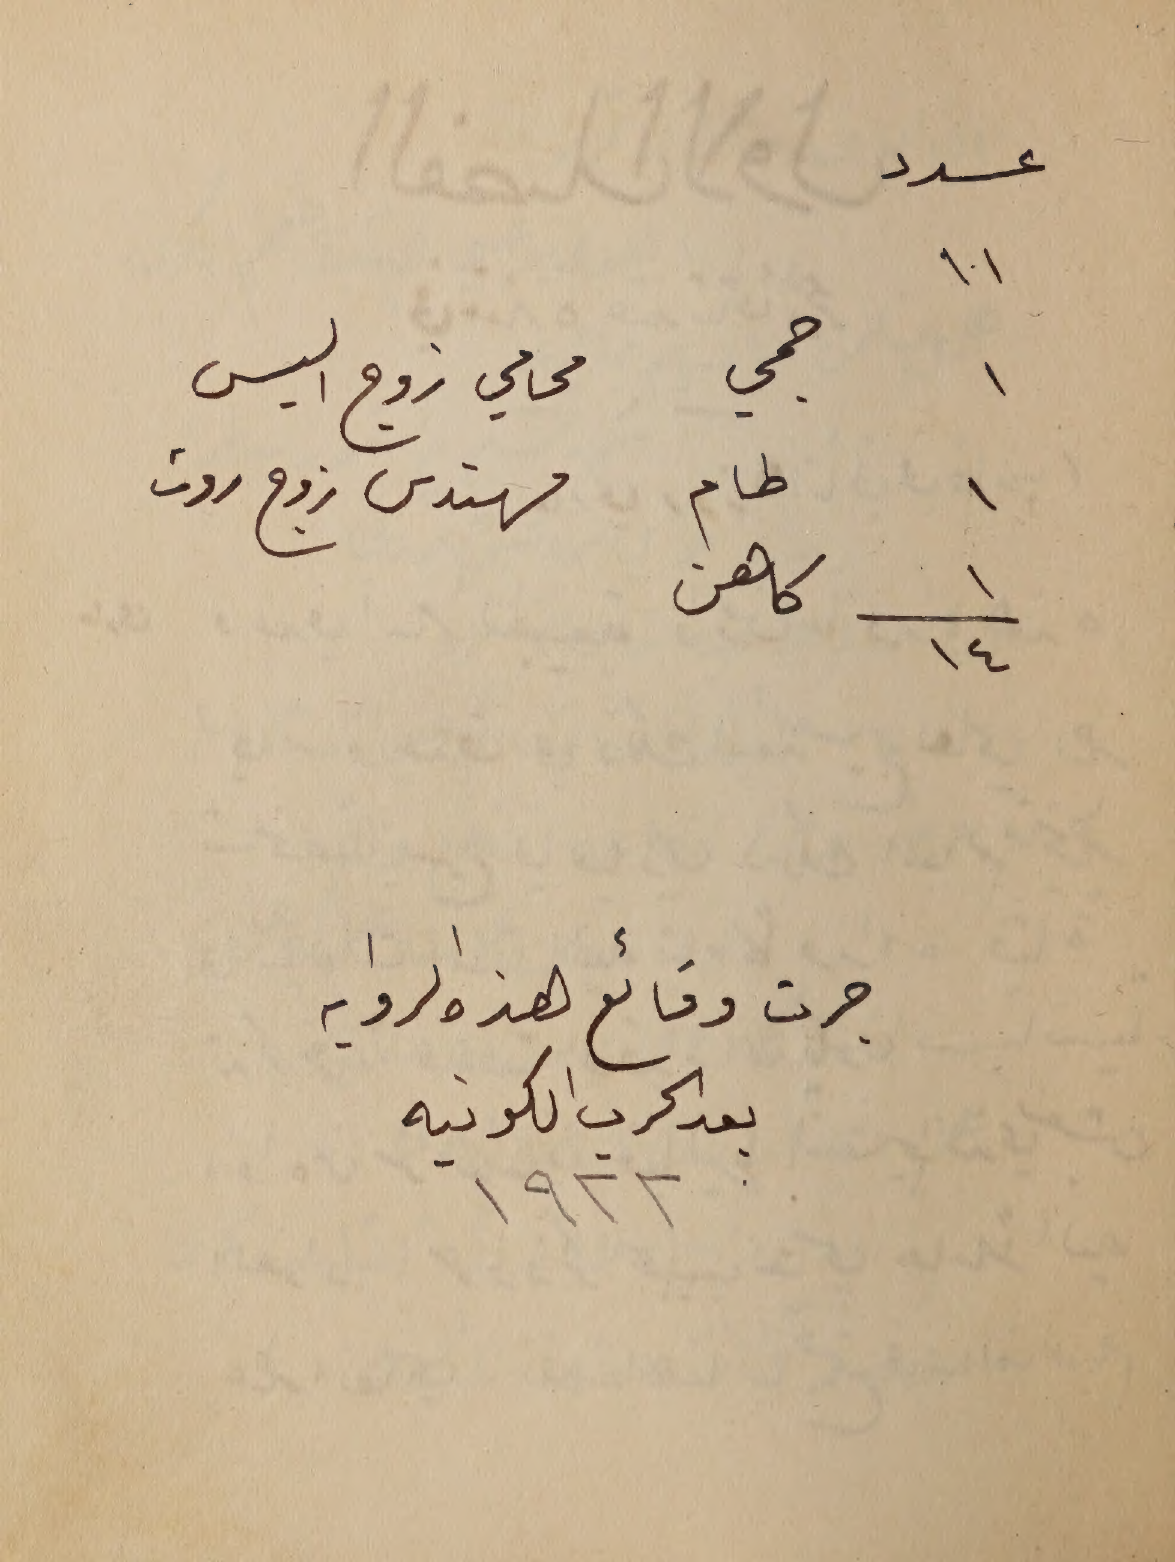 عدد
١١
١ جمي محامي زوج اليس
١ طام مهندس زوج روث
١ كاهن
١٤
جرت وقائع هذه الروايه
بعد الحرب الكونيه
١٩٢٢